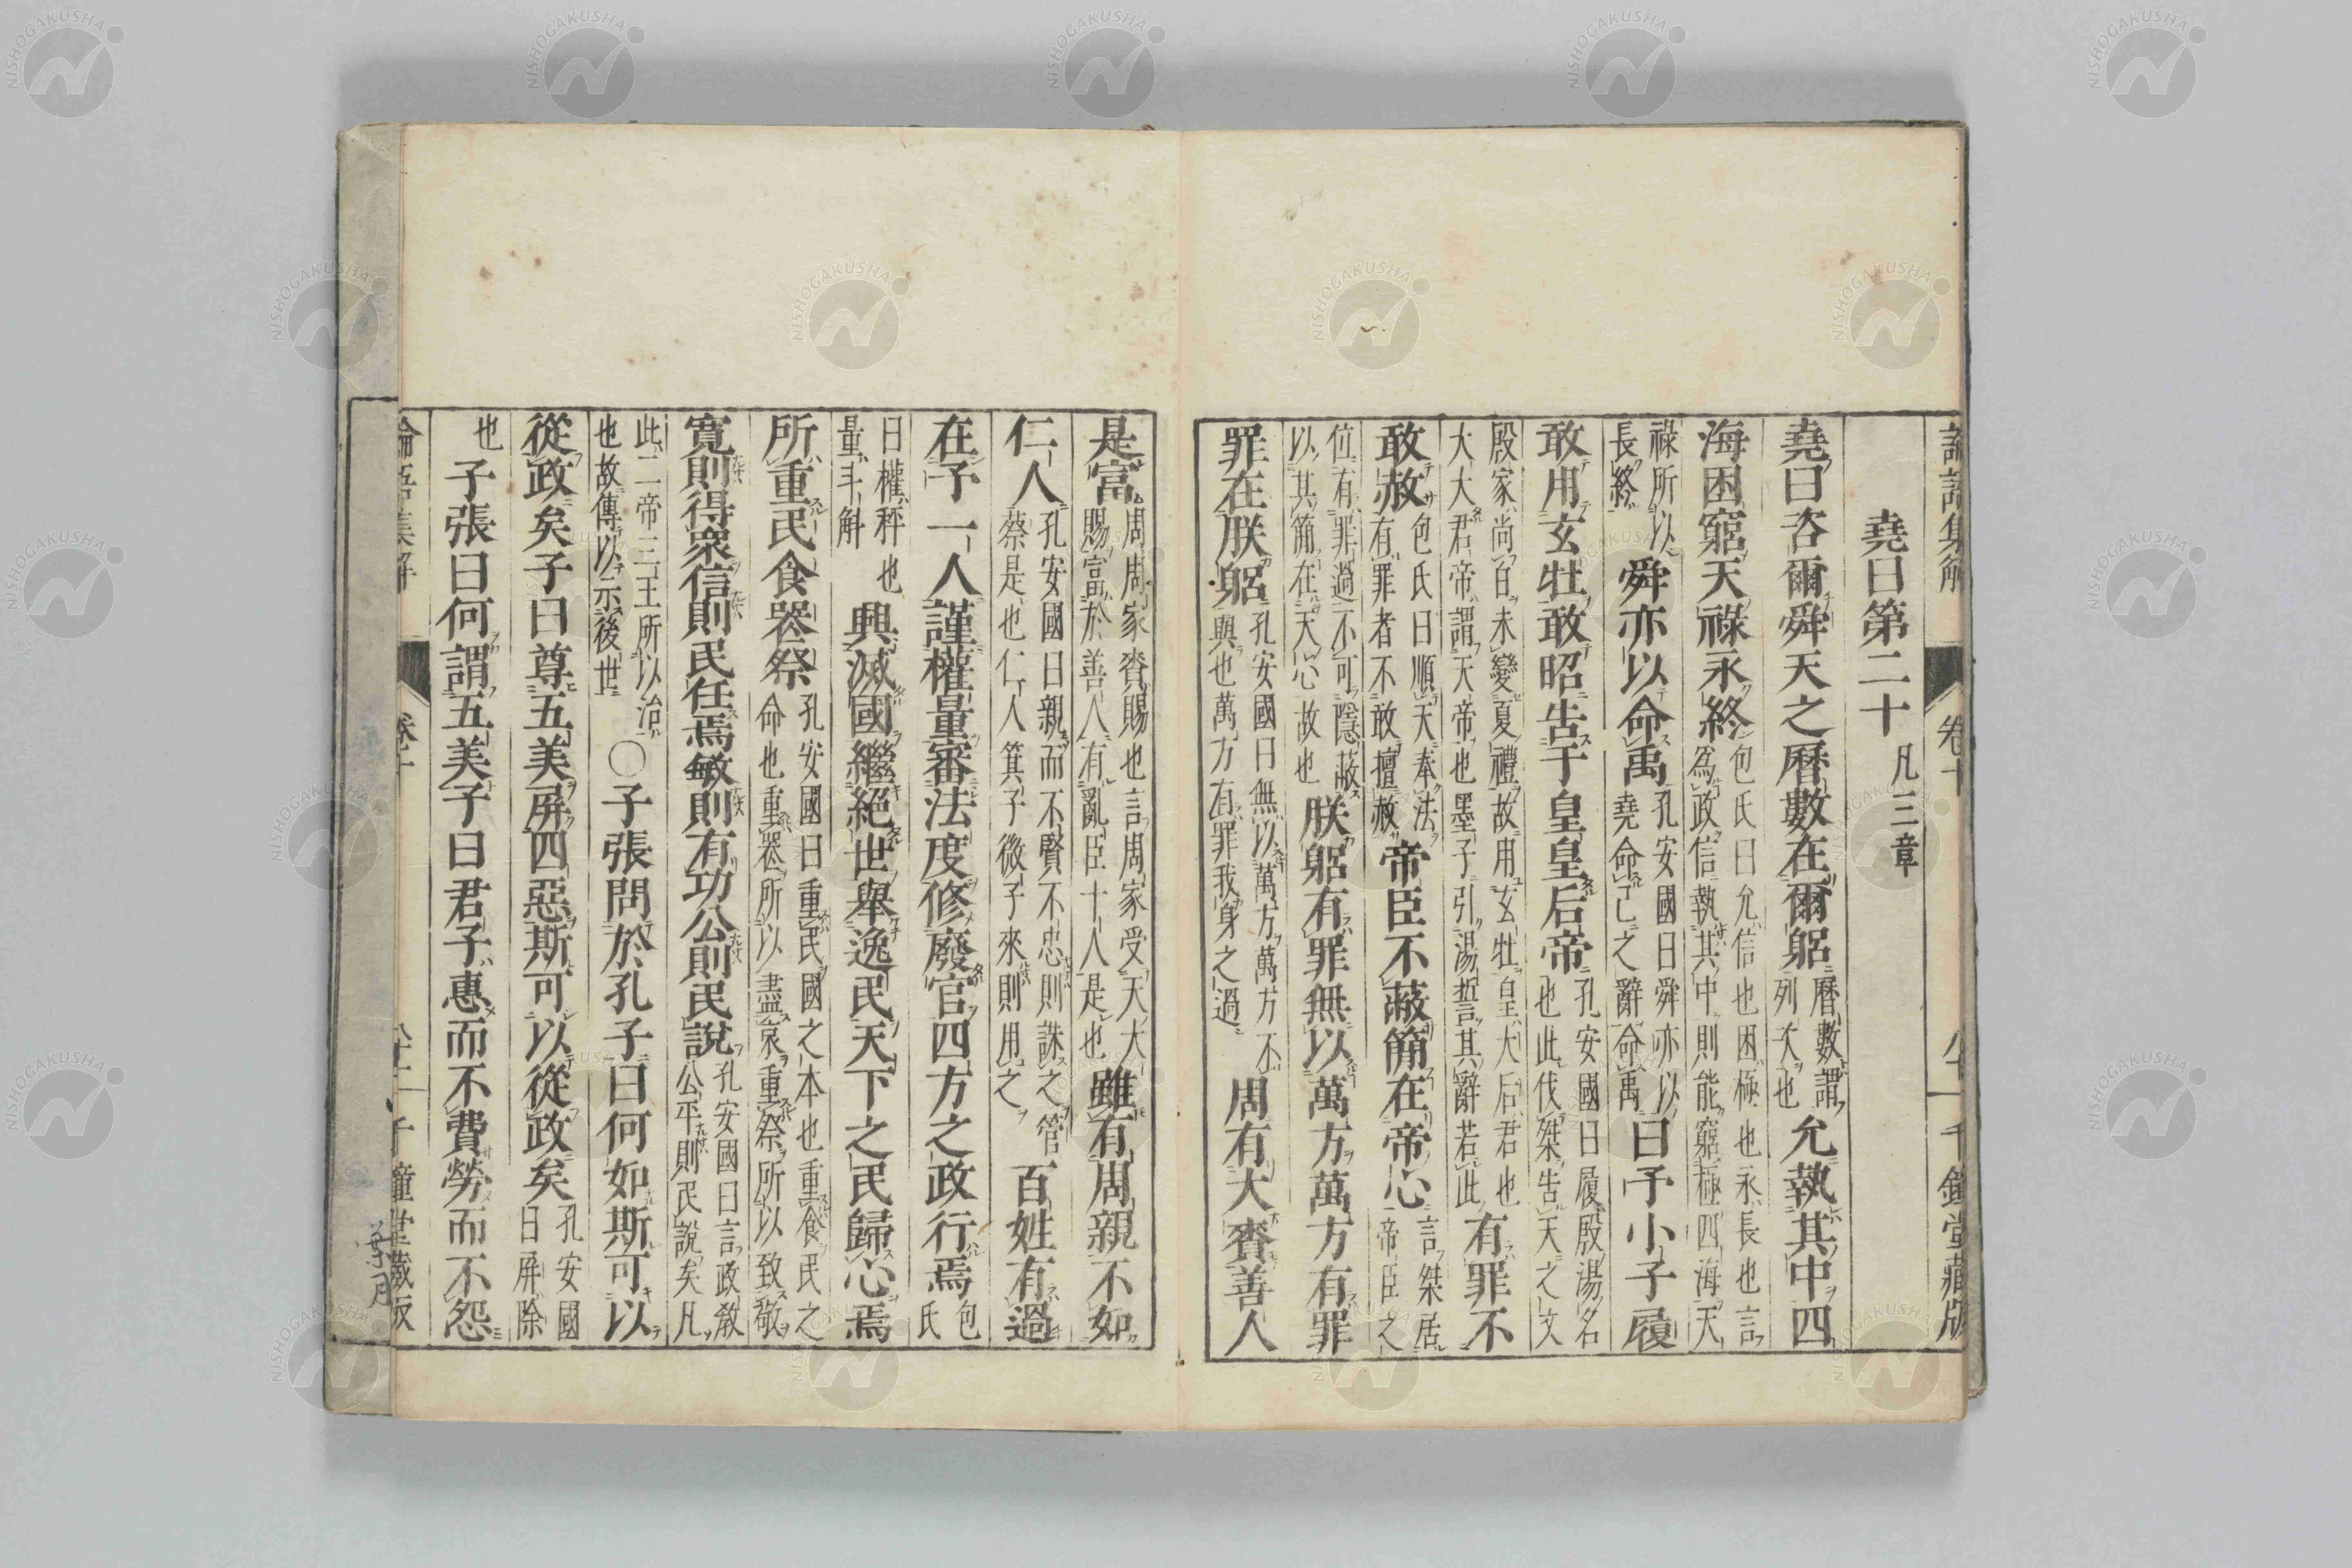 論語集解 卷十 千鍾堂藏版
堯曰第二十 凡三章
堯曰咨爾舜天之曆數在爾躬 曆數謂
列次也 允執其中四
海困窮天祿永終 包氏曰允信也困極也永長也言
為政信執其中則能窮極四海天
祿所以
長終 舜亦以命禹 孔安國曰舜亦以
堯命己之辭命禹 曰予小子履
敢用玄牡敢昭告于皇皇后帝 孔安國曰履殷湯名
也此伐桀告天之文
殷家尚白未變夏禮故用玄牡皇大后君也
大大君帝謂天帝也墨子引湯誓其辭若此 有罪不
敢赦 包氏曰順天奉法
有罪者不敢擅赦 帝臣不蔽簡在帝心 言桀居
帝臣之
位有罪過不可隱蔽
以其簡在天心故也 朕躬有罪無以萬方萬方有罪
罪在朕躬 孔安國曰無以萬方萬方不
與也萬方有罪我身之過 周有大賚善人
是富 周周家賚賜也言周家受天大
賜富於善人有亂臣十人是也 雖有周親不如
仁人 孔安國曰親而不賢不忠則誅之管
蔡是也仁人箕子微子來則用之 百姓有過
在予一人謹權量審法度修廢官四方之政行焉 包
氏
曰權秤也
量斗斛 興滅國繼絕世舉逸民天下之民歸心焉
所重民食喪祭 孔安國曰重民國之本也重食民之
命也重喪所以盡哀重祭所以致敬
寬則得衆信則民任焉敏則有功公則民說 孔安國曰言政教
公平則民說矣凡
此二帝三王所以治
也故傳以示後世 〇子張問於孔子曰何如斯可以
從政矣子曰尊五美屏四惡斯可以從政矣 孔安國
曰屏除
也 子張曰何謂五美子曰君子惠而不費勞而不怨
論語集解 卷十 千鍾堂藏版
NISHOGAKUSHA